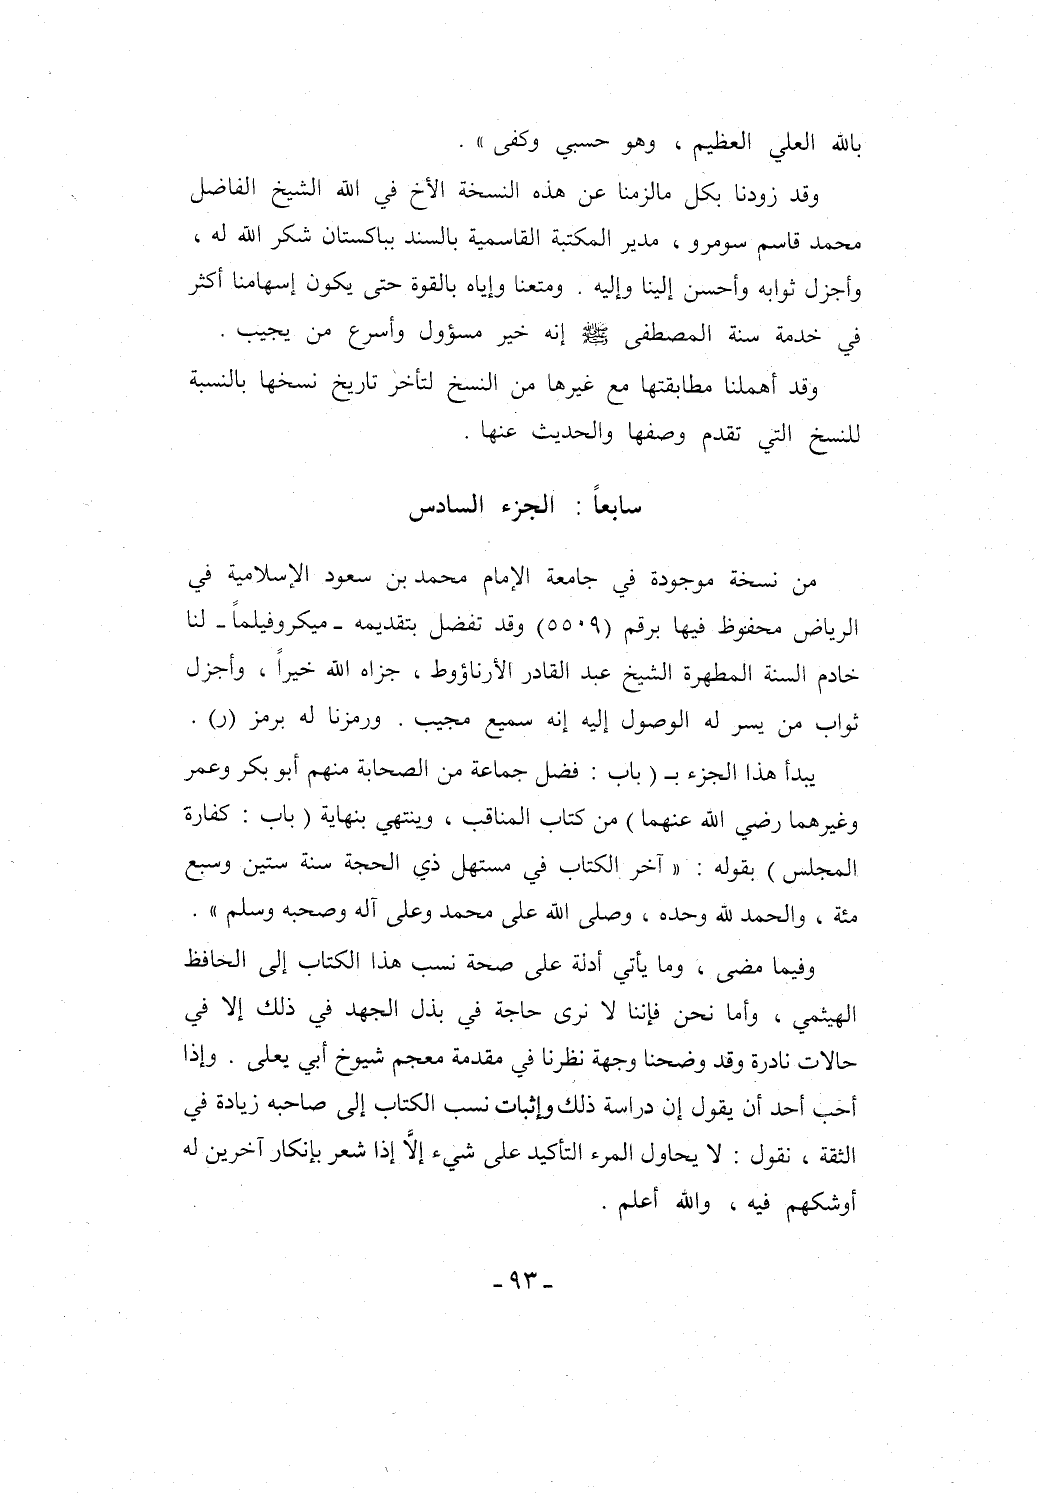 بالله العلي العظيم ، وهو حسبي وكفى » .
وقد زودنا بكل مالزمنا عن هذه النسخة الأخ في الله الشيخ الفاضل
محمد قاسم سومرو ، مدير المكتبة القاسمية بالسند بباكستان شكر الله له ،
وأجزل ثوابه وأحسن إلينا وإليه . ومتعنا وإياه بالقوة حتى يكون إسهامنا أكثر
في خدمة سنة المصطفى ﷺ إنه خير مسؤول وأسرع من يجيب .
وقد أهملنا مطابقتها مع غيرها من النسخ لتأخر تاريخ نسخها بالنسبة
للنسخ التي تقدم وصفها والحديث عنها .
سابعاً : الجزء السادس
من نسخة موجودة في جامعة الإمام محمد بن سعود الإسلامية في
الرياض محفوظ فيها برقم (٥٥٠٩) وقد تفضل بتقديمه ـ ميكروفيلماً ـ لنا
خادم السنة المطهرة الشيخ عبد القادر الأرناؤوط ، جزاه الله خيراً ، وأجزل
ثواب من يسر له الوصول إليه إنه سميع مجيب . ورمزنا له برمز (ر) .
يبدأ هذا الجزء بـ ( باب : فضل جماعة من الصحابة منهم أبو بكر وعمر
وغيرهما رضي الله عنهما ) من كتاب المناقب ، وينتهي بنهاية ( باب : كفارة
المجلس ) بقوله : « آخر الكتاب في مستهل ذي الحجة سنة ستين وسبع
مئة ، والحمد لله وحده ، وصلى الله على محمد وعلى آله وصحبه وسلم » .
وفيما مضى ، وما يأتي أدلة على صحة نسب هذا الكتاب إلى الحافظ
الهيثمي ، وأما نحن فإننا لا نرى حاجة في بذل الجهد في ذلك إلا في
حالات نادرة وقد وضحنا وجهة نظرنا في مقدمة معجم شيوخ أبي يعلى . وإذا
أحب أحد أن يقول إن دراسة ذلك وإثبات نسب الكتاب إلى صاحبه زيادة في
الثقة ، نقول : لا يحاول المرء التأكيد على شيء إلَّا إذا شعر بإنكار آخرين له
أوشكهم فيه ، والله أعلم .
ـ ٩٣ ـ